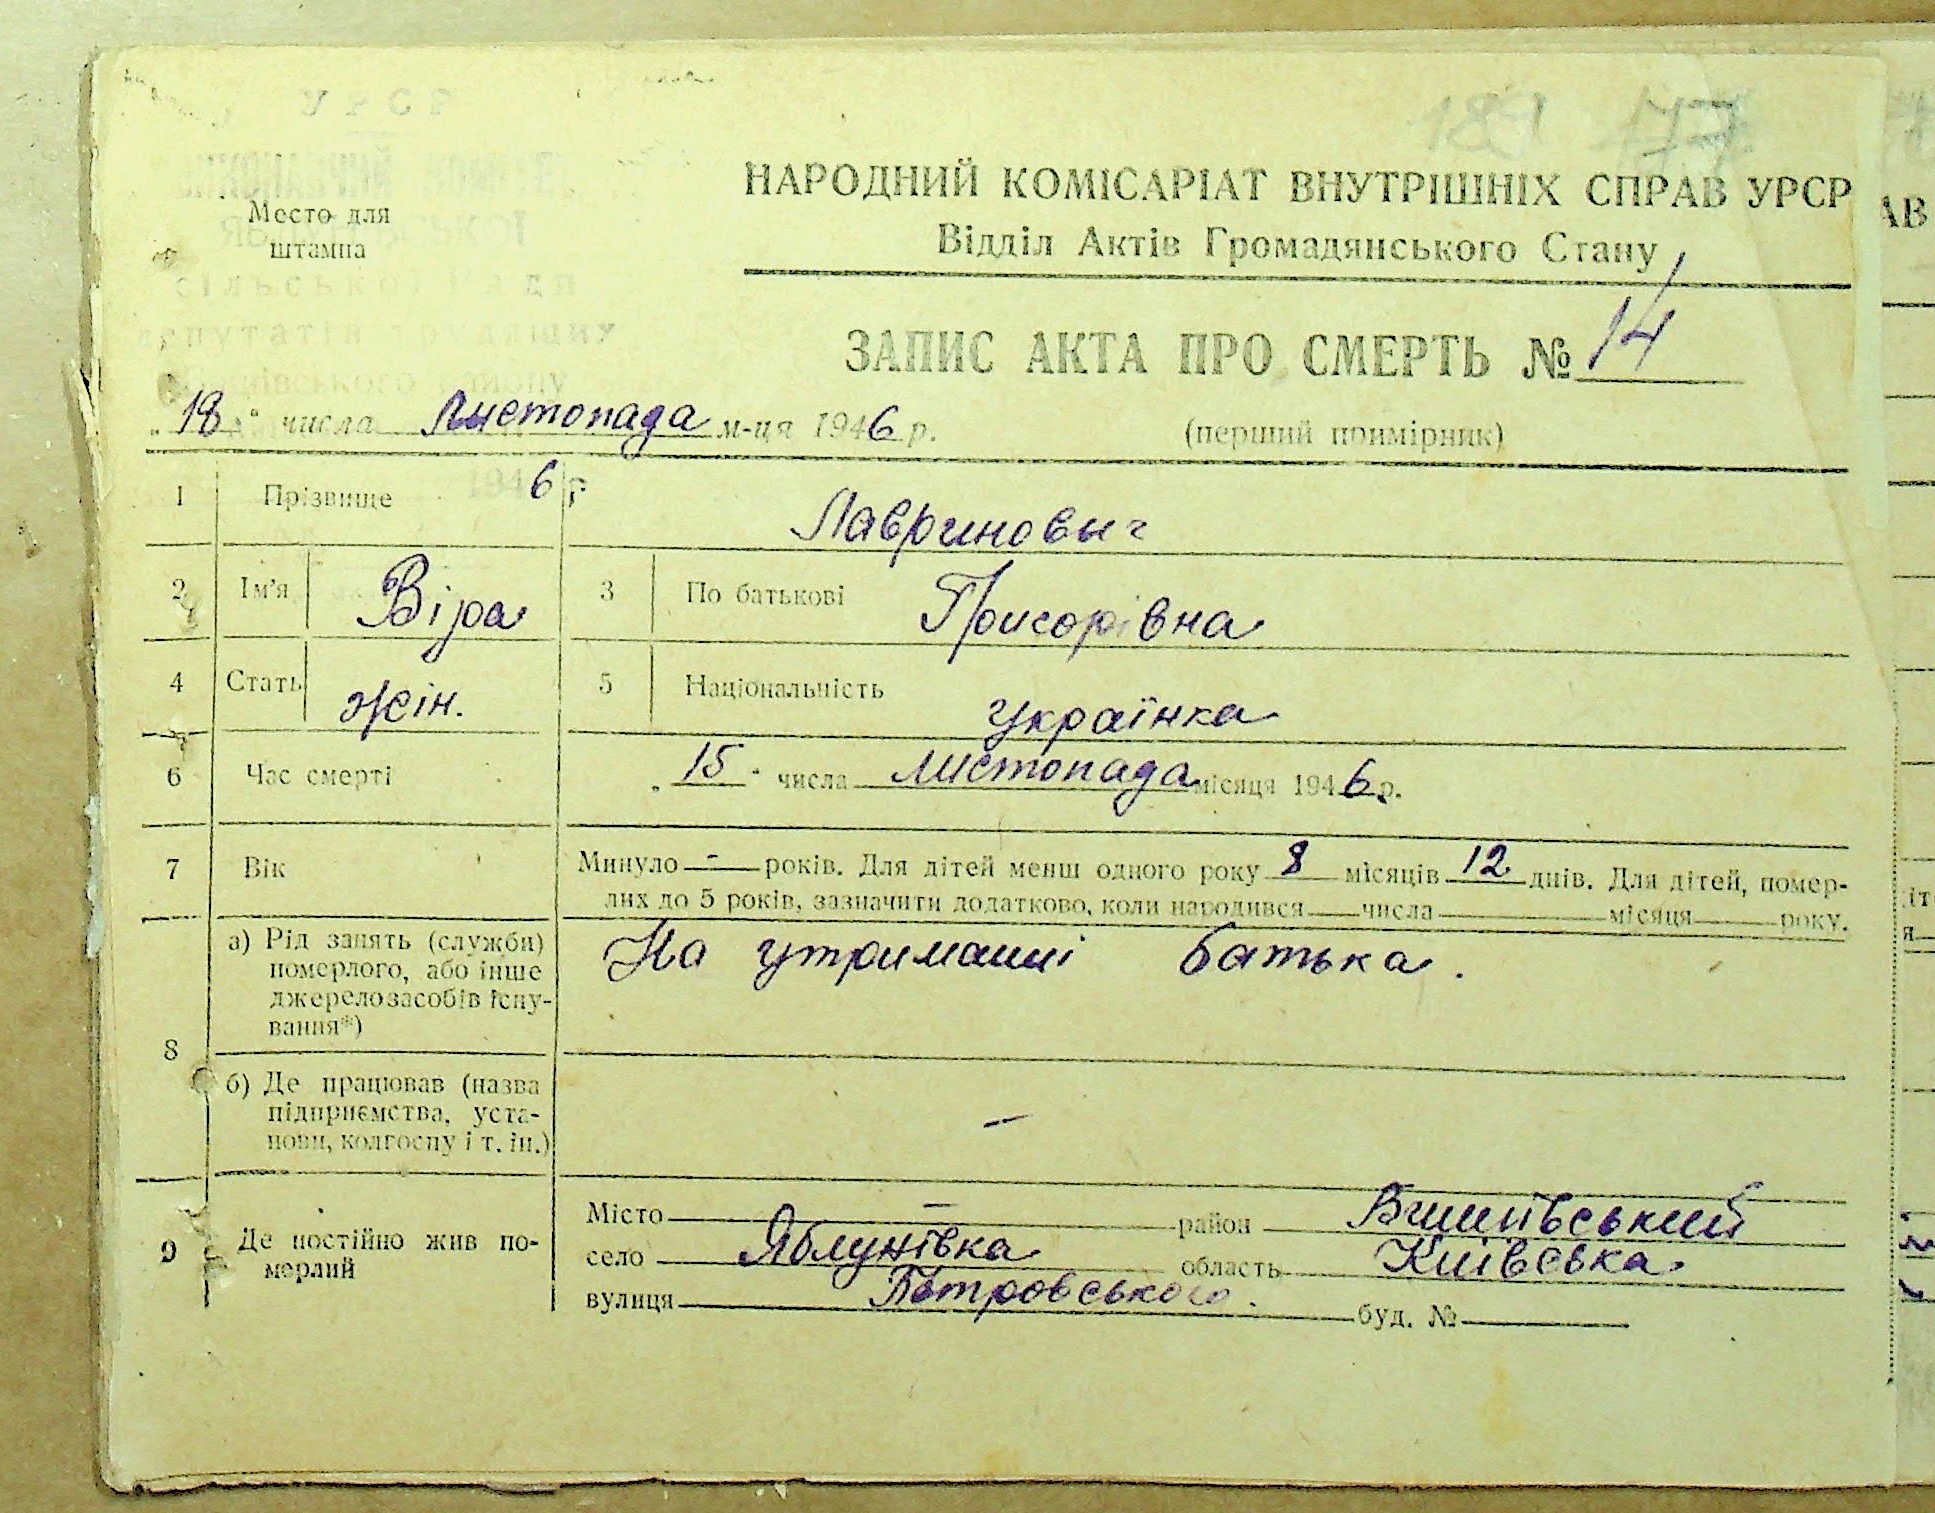 77
НАРОДНИЙ КОМІСАРІАТ ВНУТРІШНІХ СПРАВ УРСР
Відділ Актів Громадянського Стану
УРСР
Место для
штампа
сільської Ради
депутатів трудящих
ЗАПИС АКТА ПРО СМЕРТЬ № 14
„18“ числа Листопада м-ця 1946 р.
(перший примірник)
1946 р
1 Прізвище Лавриновыч
2 Ім'я Віра 3 По батькові Григорівна
4 Стать жін. 5 Національність українка
6 Час смерті „15“ числа листопада місяця 1946 р.
7 Вік Минуло - років. Для дітей менш одного року 8 місяців 12 днів. Для дітей, помер-
лих до 5 років, зазначити додатково, коли народився числа місяця року.
8 а) Рід занять (служби)
померлого, або інше
джерело засобів існу-
вання*)
На утриманні батька.
б) Де працював (назва
підприємства, уста-
нови, колгоспу і т. ін.)
–
9 Де постійно жив по-
мерлий
Місто – район
село Яблунівка область Київська
вулиця Петровського. буд. №
АВ